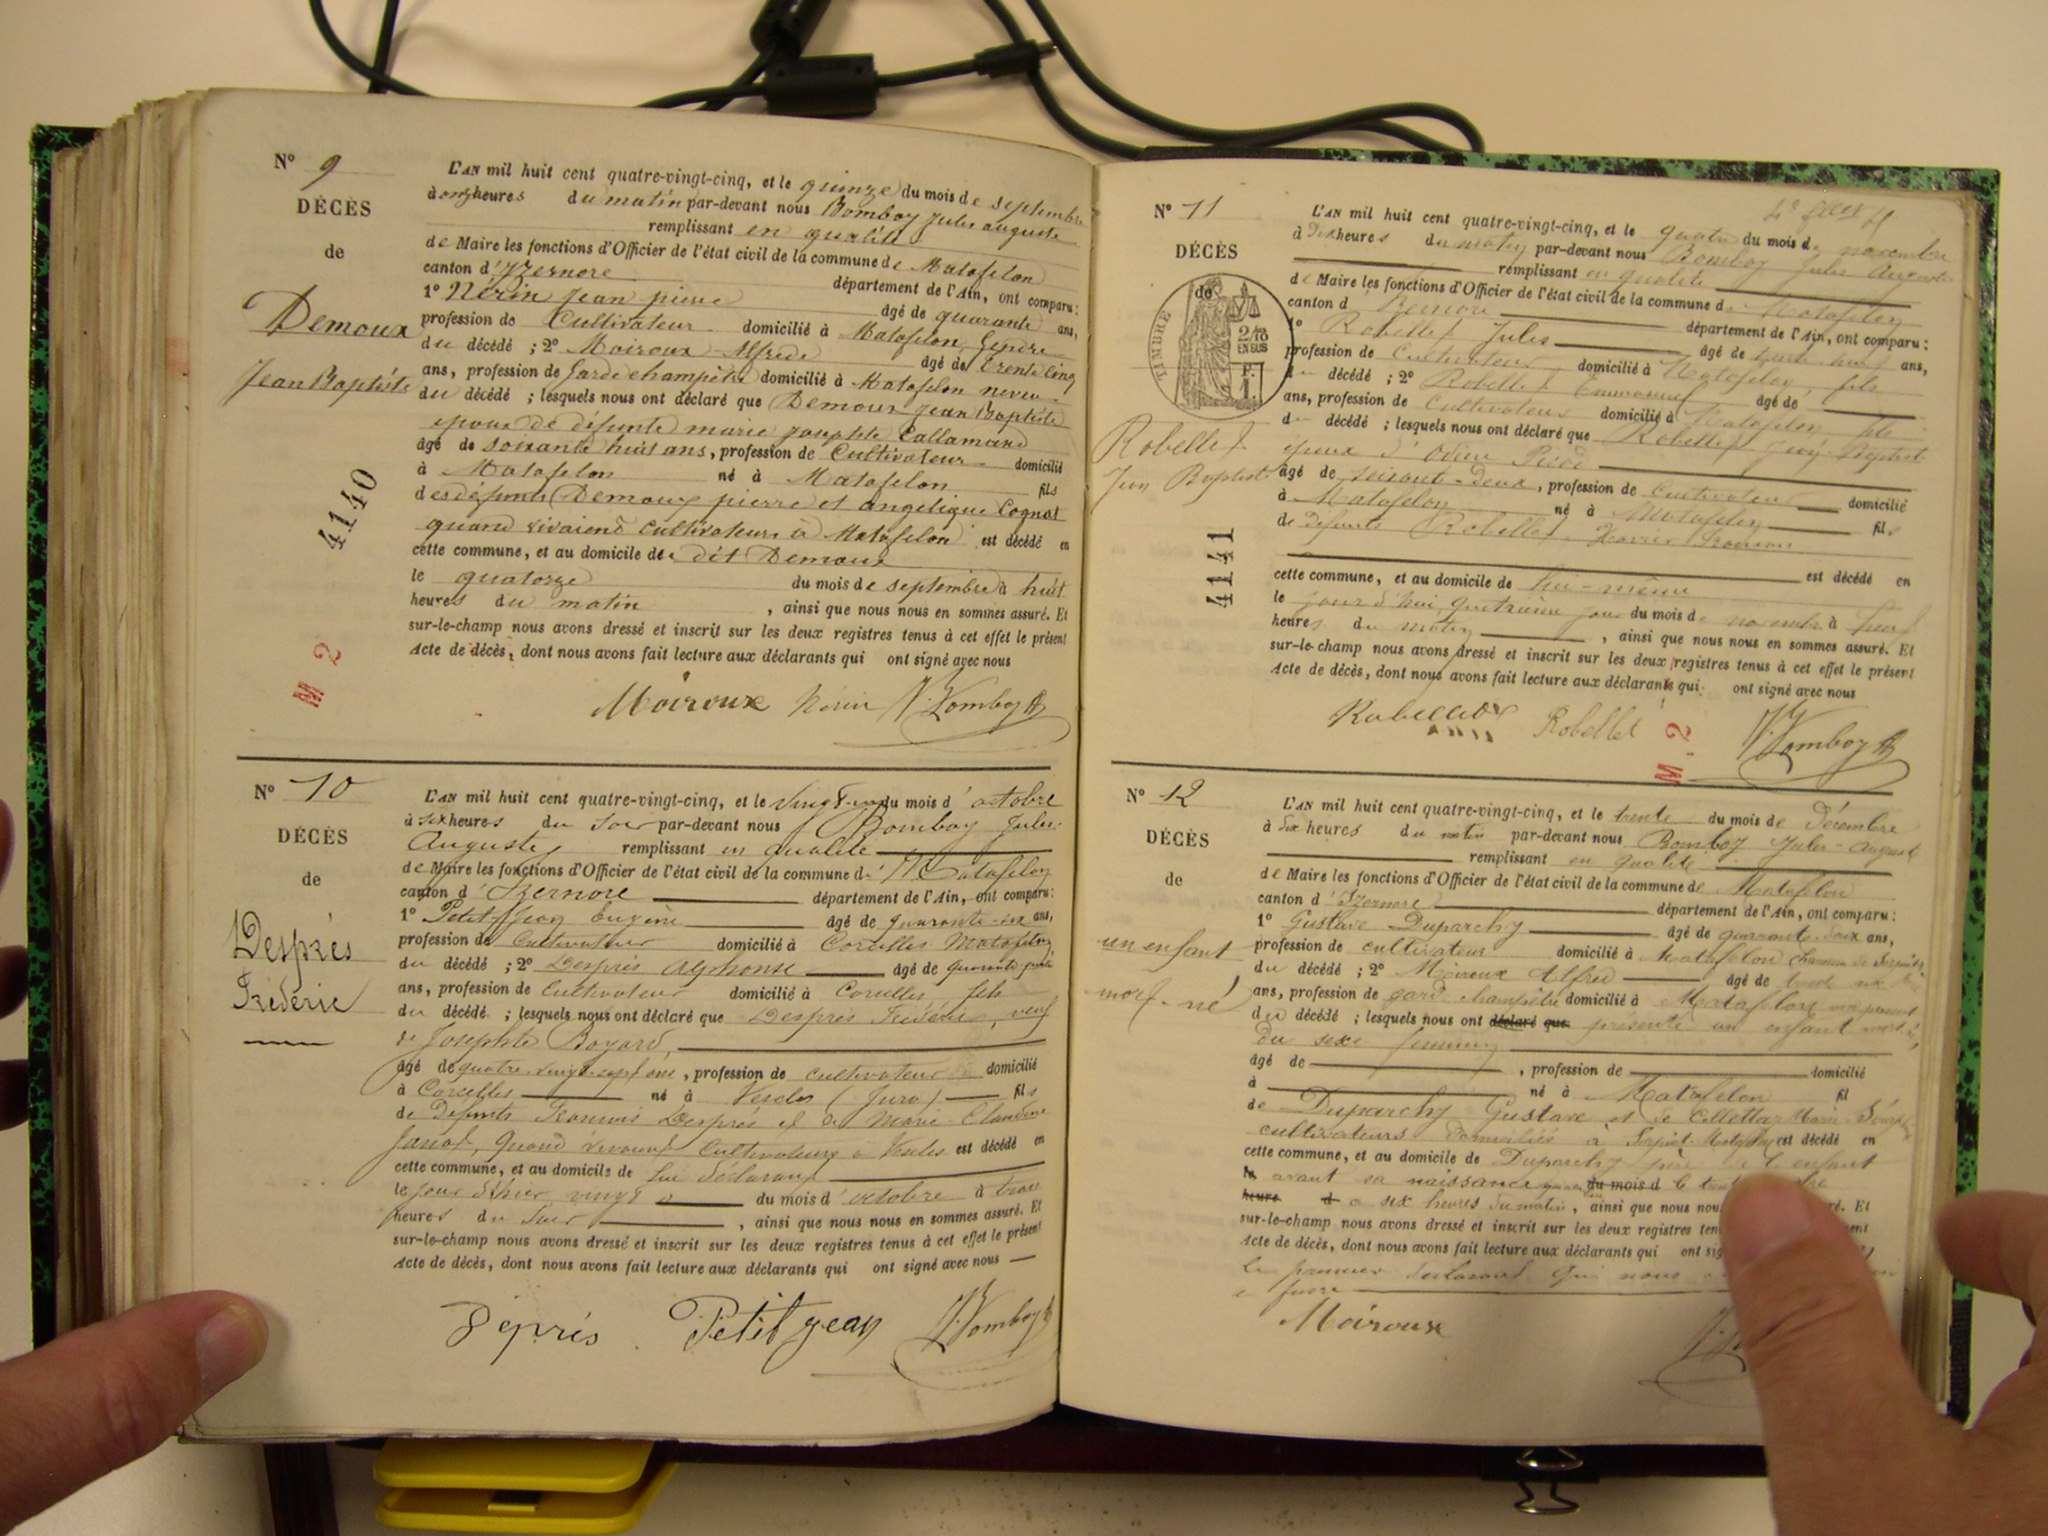 N° 9
DÉCÈS
de
Demoux
Jean Baptiste
4140
M 2
L'AN mil huit cent quatre-vingt-cinq, et le quinze du mois de septembre
à onze heures du matin par-devant nous Bomboy Jules auguste
remplissant en qualité
de Maire les fonctions d'Officier de l'état civil de la commune de Matafelon
canton d'Izernore département de l'Ain, ont comparu:
1° Nérin Jean pierre âgé de quarante ans,
profession de Cultivateur domicilié à Matafelon, Gendre
du décédé ; 2° Moiroux Alfrede âgé de trente cinq
ans, profession de garde champêtre domicilié à Matafelon neveu
du décédé ; lesquels nous ont déclaré que Demoux Jean Baptiste
epoux de défunte marie josephte Callamard
âgé de soixante huit ans, profession de Cultivateur domicilié
à Matafelon né à Matafelon fils
des défunts Demoux pierre et angélique Cognat
quand vivaient cultivateurs à Matafelon est décédé en
cette commune, et au domicile de dit Demoux
le quatorze du mois de septembre à huit
heures du matin , ainsi que nous nous en sommes assuré. Et
sur-le-champ nous avons dressé et inscrit sur les deux registres tenus à cet effet le présent
Acte de décès, dont nous avons fait lecture aux déclarants qui ont signé avec nous
Moiroux Nérin Bomboy
N° 10
DÉCÈS
de
Després
Frédéric
L'AN mil huit cent quatre-vingt-cinq, et le vingt-un du mois d'octobre
à six heures du soir par-devant nous Bomboy Jules
Auguste, remplissant en qualité
de Maire les fonctions d'Officier de l'état civil de la commune de Matafelon
canton d'Izernore département de l'Ain, ont comparu:
1° Petitjean Eugène âgé de quarante-six ans,
profession de Cultivateur domicilié à Corcelles Matafelon
du décédé ; 2° Després Alphonse âgé de quarante
ans, profession de Cultivateur domicilié à Corcelles, fils
du décédé ; lesquels nous ont déclaré que Després Frédéric, veuf
de Josephte Boyard,
âgé de quatre vingt sept ans, profession de cultivateur domicilié
à Corcelles né à Vescles (Jura) fils
de Défunts François Després et de Marie Claudine
Janod, Quand vivaient Cultivateurs à Vescles est décédé en
cette commune, et au domicile de
le jour d'hier, vingt du mois d'octobre à trois
heures du Soir , ainsi que nous nous en sommes assuré. Et
sur-le-champ nous avons dressé et inscrit sur les deux registres tenus à cet effet le présent
Acte de décès, dont nous avons fait lecture aux déclarants qui ont signé avec nous
Déprés Petitjean Bomboy
N° 11
DÉCÈS
de
TIMBRE
2/10
EN SUS
Robellet
Jean Baptiste
4141
M. 2
L'AN mil huit cent quatre-vingt-cinq, et le quatre du mois de novembre
à dix heures du matin par-devant nous Bomboy Jules Auguste
remplissant en qualité
de Maire les fonctions d'Officier de l'état civil de la commune de Matafelon
canton d'Izernore département de l'Ain, ont comparu:
1° Robellet Jules âgé de trente ans,
profession de Cultivateur domicilié à Matafelon, fils
du décédé ; 2° Robellet Emmanuel âgé de
ans, profession de Cultivateur domicilié à Matafelon fils
du décédé ; lesquels nous ont déclaré que Robellet Jean Baptiste
epoux d'Odieu
âgé de soixante-deux, profession de Cultivateur domicilié
à Matafelon né à Matafelon fils
de Défunts Robellet
est décédé en
cette commune, et au domicile de lui-même
le jour d'hui, quatrième jour du mois de novembre à
heures du matin , ainsi que nous nous en sommes assuré. Et
sur-le-champ nous avons dressé et inscrit sur les deux registres tenus à cet effet le présent
Acte de décès, dont nous avons fait lecture aux déclarants qui ont signé avec nous
Robellet Robellet Bomboy
N° 12
DÉCÈS
de
un enfant
mort-né
L'AN mil huit cent quatre-vingt-cinq, et le trente du mois de Décembre
à dix heures du matin par-devant nous Bomboy Jules-Auguste
remplissant en qualité
de Maire les fonctions d'Officier de l'état civil de la commune de Matafelon
canton d'Izernore département de l'Ain, ont comparu:
1° Gustave Duparchy âgé de quarante-deux ans,
profession de cultivateur domicilié à Matafelon
du décédé ; 2° Moiroux Alfred âgé de trente six
ans, profession de garde champêtre domicilié à Matafelon non parent
du décédé ; lesquels nous ont déclaré que présenté un enfant mort-né
du sexe féminin
âgé de , profession de domicilié
à né à Matafelon fil
de Duparchy Gustave et de Collettaz Marie
cultivateurs domiciliés à est décédé en
cette commune, et au domicile de Duparchy père de l'enfant
avant sa naissance du mois d le
heure d à six heures du matin, ainsi que nous
sur-le-champ nous avons dressé et inscrit sur les deux registres
Acte de décès, dont nous avons fait lecture aux déclarants qui ont
le premier déclarant qui nous
Moiroux